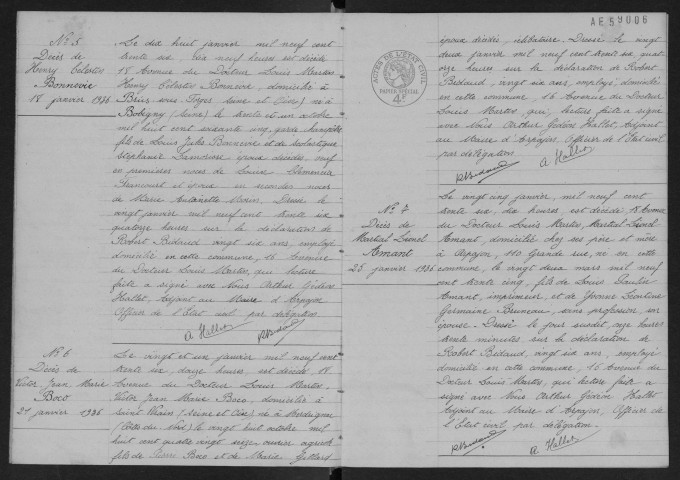 N° 5
Décès de
Henry Célestes
Bonnevie
18 janvier 1936
Le dix huit janvier mil neuf cent
trente six, dix neuf heures est décédé
18 Avenue du Docteur Louis Martos
Henry Célestes Bonnevie, domicilié à
Briis sous Forges (Seine et Oise) né à
Bobigny (Seine) le trente et un octobre
mil huit cent soixante cinq, garde
fils de Louis Jules Bonnevie et de Scholastique
Stéphanie époux décédés, veuf
en premières noces de Louise Clémence
et époux en secondes noces
de Marie Antoinette Morin. Dressé le
vingt janvier mil neuf cent trente six
quatorze heures sur la déclaration de
Robert Bidaud vingt six ans, employé
domicilié en cette commune, 16 Avenue
du Docteur Louis Martos, qui lecture
faite a signé avec Nous Arthur Gédéon
Hallot, Adjoint au Maire d'Arpajon
Officier de l'Etat civil par délégation
A Hallot RBidaud
N° 6
Décès de
Victor Jean Marie
Bico
21 janvier 1936
Le vingt et un janvier mil neuf cent
trente six, douze heures, est décédé, 18
Avenue du Docteur Louis Martos,
Victor Jean Marie Bico, domicilié à
Saint Vrain (Seine et Oise) né à
(Côtes du Nord) le vingt huit octobre mil
huit cent quatre vingt seize, ouvrier agricole
fils de Pierre Bico et de Marie Gillard
AE59006
ACTES DE L'ÉTAT CIVIL
PAPIER SPÉCIAL
4F
époux décédés, célibataire. Dressé le vingt
deux janvier mil neuf cent trente six, quat-
orze heures sur la déclaration de Robert
Bidaud, vingt six ans, employé, domicilié
en cette commune, 16 Avenue du Docteur
Louis Martos, qui, lecture faite a signé
avec Nous Arthur Gédéon Hallot, Adjoint
au Maire d'Arpajon, Officier de l'Etat civil
par délégation
RBidaud A Hallot
N° 7
Décès de
Martial Lionel
Amant
25 janvier 1936
Le vingt cinq janvier, mil neuf cent
trente six, dix heures, est décédé, 18 Avenue
du Docteur Louis Martos, Martial Lionel
Amant, domicilié chez ses père et mère
à Arpajon, 110 Grande rue, né en cette
commune, le vingt deux mars mil neuf
cent trente cinq, fils de Louis Paulin
Amant, imprimeur, et de Yvonne Léontine
Germaine Bruneau, sans profession, son
épouse. Dressé le jour susdit, onze heures
trente minutes sur la déclaration de
Robert Bidaud, vingt six ans, employé
domicilié en cette commune, 16 Avenue du
Docteur Louis Martos, qui, lecture faite a
signé avec Nous Arthur Gédéon Hallot
Adjoint au Maire d'Arpajon, Officier de
l'Etat civil par délégation.
RBidaud A Hallot